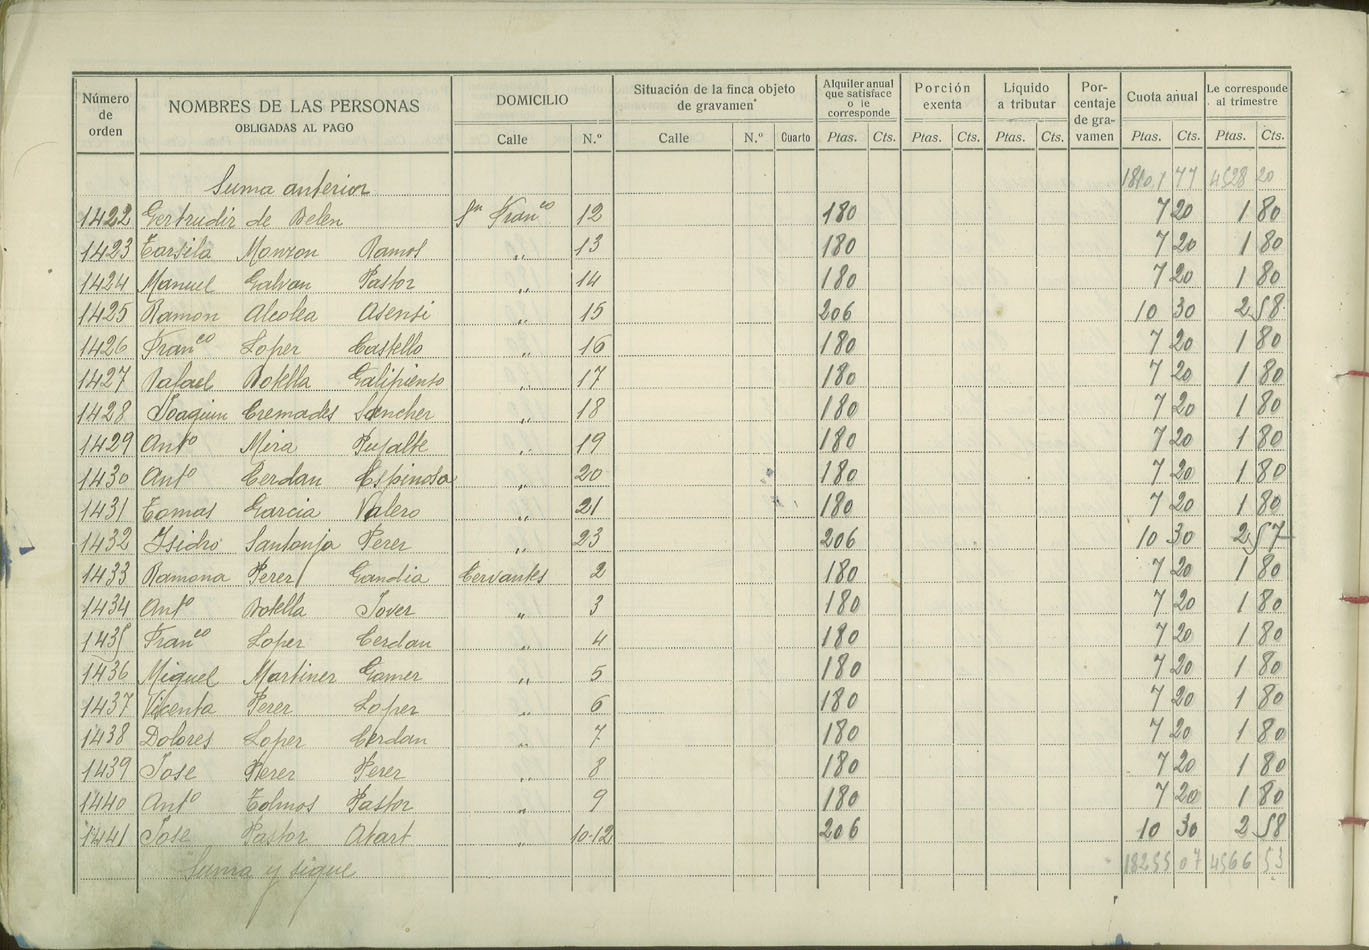 Número de orden | NOMBRES DE LAS PERSONAS OBLIGADAS AL PAGO | DOMICILIO | Situación de la finca objeto de gravamen | Alquiler anual que satisface o le corresponde | Porción exenta | Líquido a tributar | Por-centaje de gra-vamen | Cuota anual | Le corresponde al trimestre
Calle | N.º | Calle | N.º | Cuarto | Ptas. | Cts. | Ptas. | Cts. | Ptas. | Cts. | Ptas. | Cts. | Ptas. | Cts.
Suma anterior 77 4528 20
1422 Gertrudis de Belen Sn Franco 12 180 7 20 1 80
1423 Tarsila Monzon Ramos " 13 180 7 20 1 80
1424 Manuel Galvan Pastor " 14 180 7 20 1 80
1425 Ramon Alcolea Asensi " 15 206 10 30 2 58
1426 Franco Loper Castello " 16 180 7 20 1 80
1427 Rafael Botella Galipienso " 17 180 7 20 1 80
1428 Joaquin Cremades Sancher " 18 180 7 20 1 80
1429 Anto Mira Pujalte " 19 180 7 20 1 80
1430 Anto Cerdan Espinosa " 20 180 7 20 1 80
1431 Tomas Garcia Valero " 21 180 7 20 1 80
1432 Isidro Santonja Perer " 23 206 10 30 2 57
1433 Ramona Perer Gandia Cervantes 2 180 7 20 1 80
1434 Anto Botella Jover " 3 180 7 20 1 80
1435 Franco Loper Cerdan " 4 180 7 20 1 80
1436 Miguel Martiner Gamer " 5 180 7 20 1 80
1437 Vicenta Perer Loper " 6 180 7 20 1 80
1438 Dolores Loper Cerdan " 7 180 7 20 1 80
1439 Jose Perer Perer " 8 180 7 20 1 80
1440 Anto Tolmos Pastor " 9 180 7 20 1 80
1441 Jose Pastor " 10-12 206 10 30 2 58
Suma y sigue 18255 07 4566 53